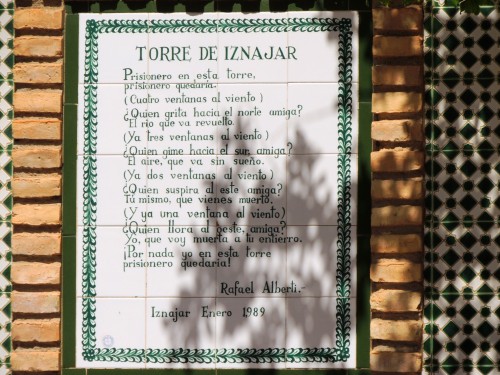 TORRE DE IZNAJAR
Prisionero en esta torre,
prisionero quedaría.
(Cuatro ventanas al viento)
¿Quien grita hacia el norte amiga?
El río que va revuelto.
(Ya tres ventanas al viento)
¿Quien gime hacia el sur, amiga?
El aire, que va sin sueño.
(Ya dos ventanas al viento)
¿Quien suspira al este amiga?
Tú mismo, que vienes muerto.
(Y ya una ventana al viento)
¿Quien llora al oeste, amiga?
Yo, que voy muerta a tu entierro.
¡Por nada yo en esta torre
prisionero quedaría!
Rafael Alberti.-
Iznajar Enero 1989